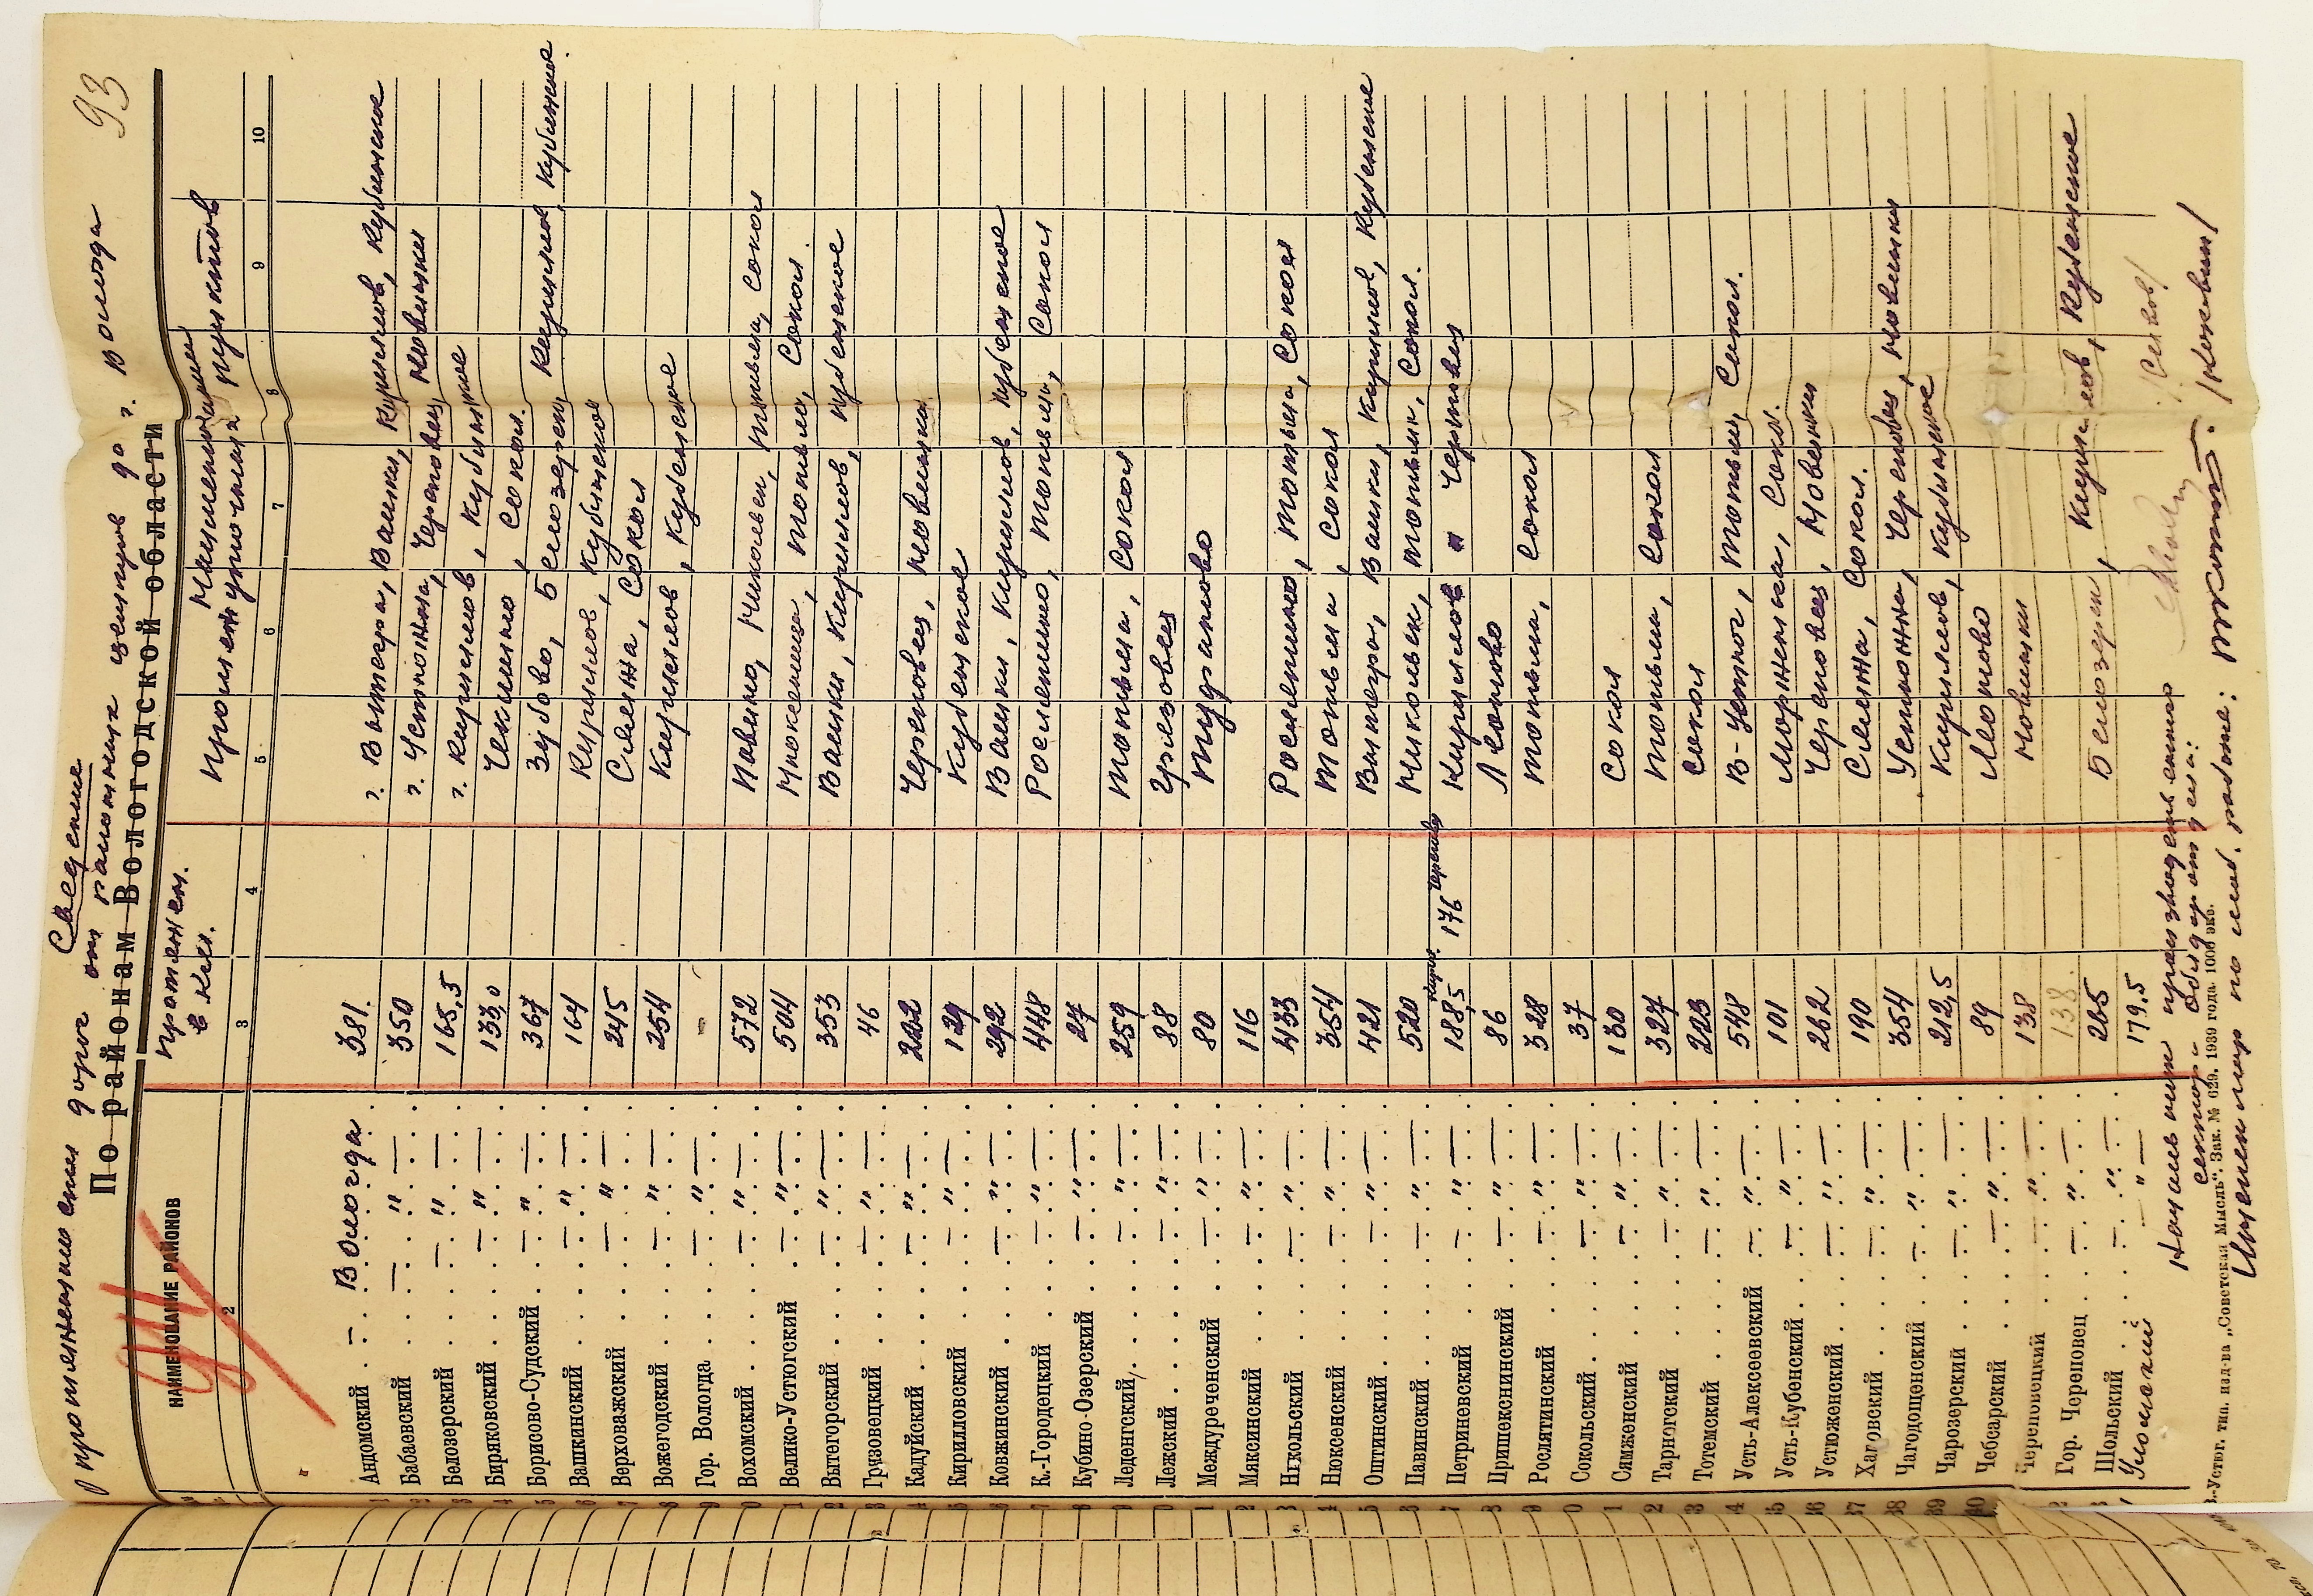 93
Сведение
О протяжении дорог от районных центров до г. Вологда
По районам Вологодской области
НАИМЕНОВАНИЕ РАЙОНОВ Протяжен. в км. Наименование промежуточных пунктов
2 3 4 5 6 7 8 9 10
1 Андомский — Вологда 381. г. Вытегра, Вашки, Кириллов, Кубинское
2 Бабаевский — „ — 350 г. Устюжна, Череповец, Мовишки
3 Белозерский — „ — 165,5 г. Кириллов, Кубинское
4 Биряковский — „ — 133,0 Чекшино, Сокол.
5 Борисово-Судский — „ — 367 Зубово, Белозерск, Кириллов, Кубинское.
6 Вашкинский — „ — 164 Кириллов, Кубинское
7 Верховажский — „ — 245 Сямжа, Сокол
8 Вожегодский — „ — 254 Кириллов, Кубенское
9 Гор. Вологда — „ — -
10 Вохомский — „ — 572 Павино, Никольск, Тотьма, Сокол
11 Велико-Устюгский — „ — 504 Нюксеница, Тотьма, Сокол.
12 Вытегорский — „ — 353 Вашки, Кириллов, Кубенское
13 Грязовецкий — „ — 46
14 Кадуйский — „ — 222 Череповец, Мовишки
15 Кирилловский — „ — 129 Кубенское
16 Ковжинский — „ — 292 Вашки, Кириллов, Кубенское
17 К.-Городецкий — „ — 448 Рослятино, Тотьма, Сокол
18 Кубино-Озерский — „ — 27
19 Леденгский — „ — 259 Тотьма, Сокол
20 Лежский — „ — 88 Грязовец
21 Междуреченский — „ — 80 Шуйское
22 Максинский — „ — 116
23 Никольский — „ — 433 Рослятино, Тотьма, Сокол
24 Нюксенский — „ — 354 Тотьма, Сокол
25 Оштинский — „ — 421 Вытегра, Вашки, Кириллов, Кубенское
26 Павинский — „ — 520 Никольск, Тотьма, Сокол.
27 Петриневский — „ — 188,5 Кирил. 176 Черепов. Кириллов и Череповец
28 Пришекснинский — „ — 86
29 Рослятинский — „ — 328 Тотьма, Сокол
30 Сокольский — „ — 37
31 Сямженский — „ — 130 Сокол
32 Тарногский — „ — 327 Тотьма, Сокол
33 Тотемский — „ — 223 Сокол
34 Усть-Алексеевский — „ — 548 В-Устюг, Тотьма, Сокол.
35 Усть-Кубенский — „ — 101
36 Устюженский — „ — 262 Череповец, Мовишки
37 Харовский — „ — 190 Сямжа, Сокол.
38 Чагодощенский — „ — 354 Устюжна, Череповец, Мовишки
39 Чарозерский — „ — 212,5 Кириллов, Кубинское
40 Чебсарский — „ — 89
Череповецкий — „ — 138 Мовишки
Гор. Череповец — „ — 138.
Шольский — „ — 265 Белозерск, Кириллов, Кубенское
Уломский — „ — 179,5
Начальник производственного
сектора Облдоротдела:
Инженер по маб. работе: /Коковин/
В.-Устюг. тип. изд-ва „Советская Мысль". Зак. № 629. 1939 года. 1000 экз.